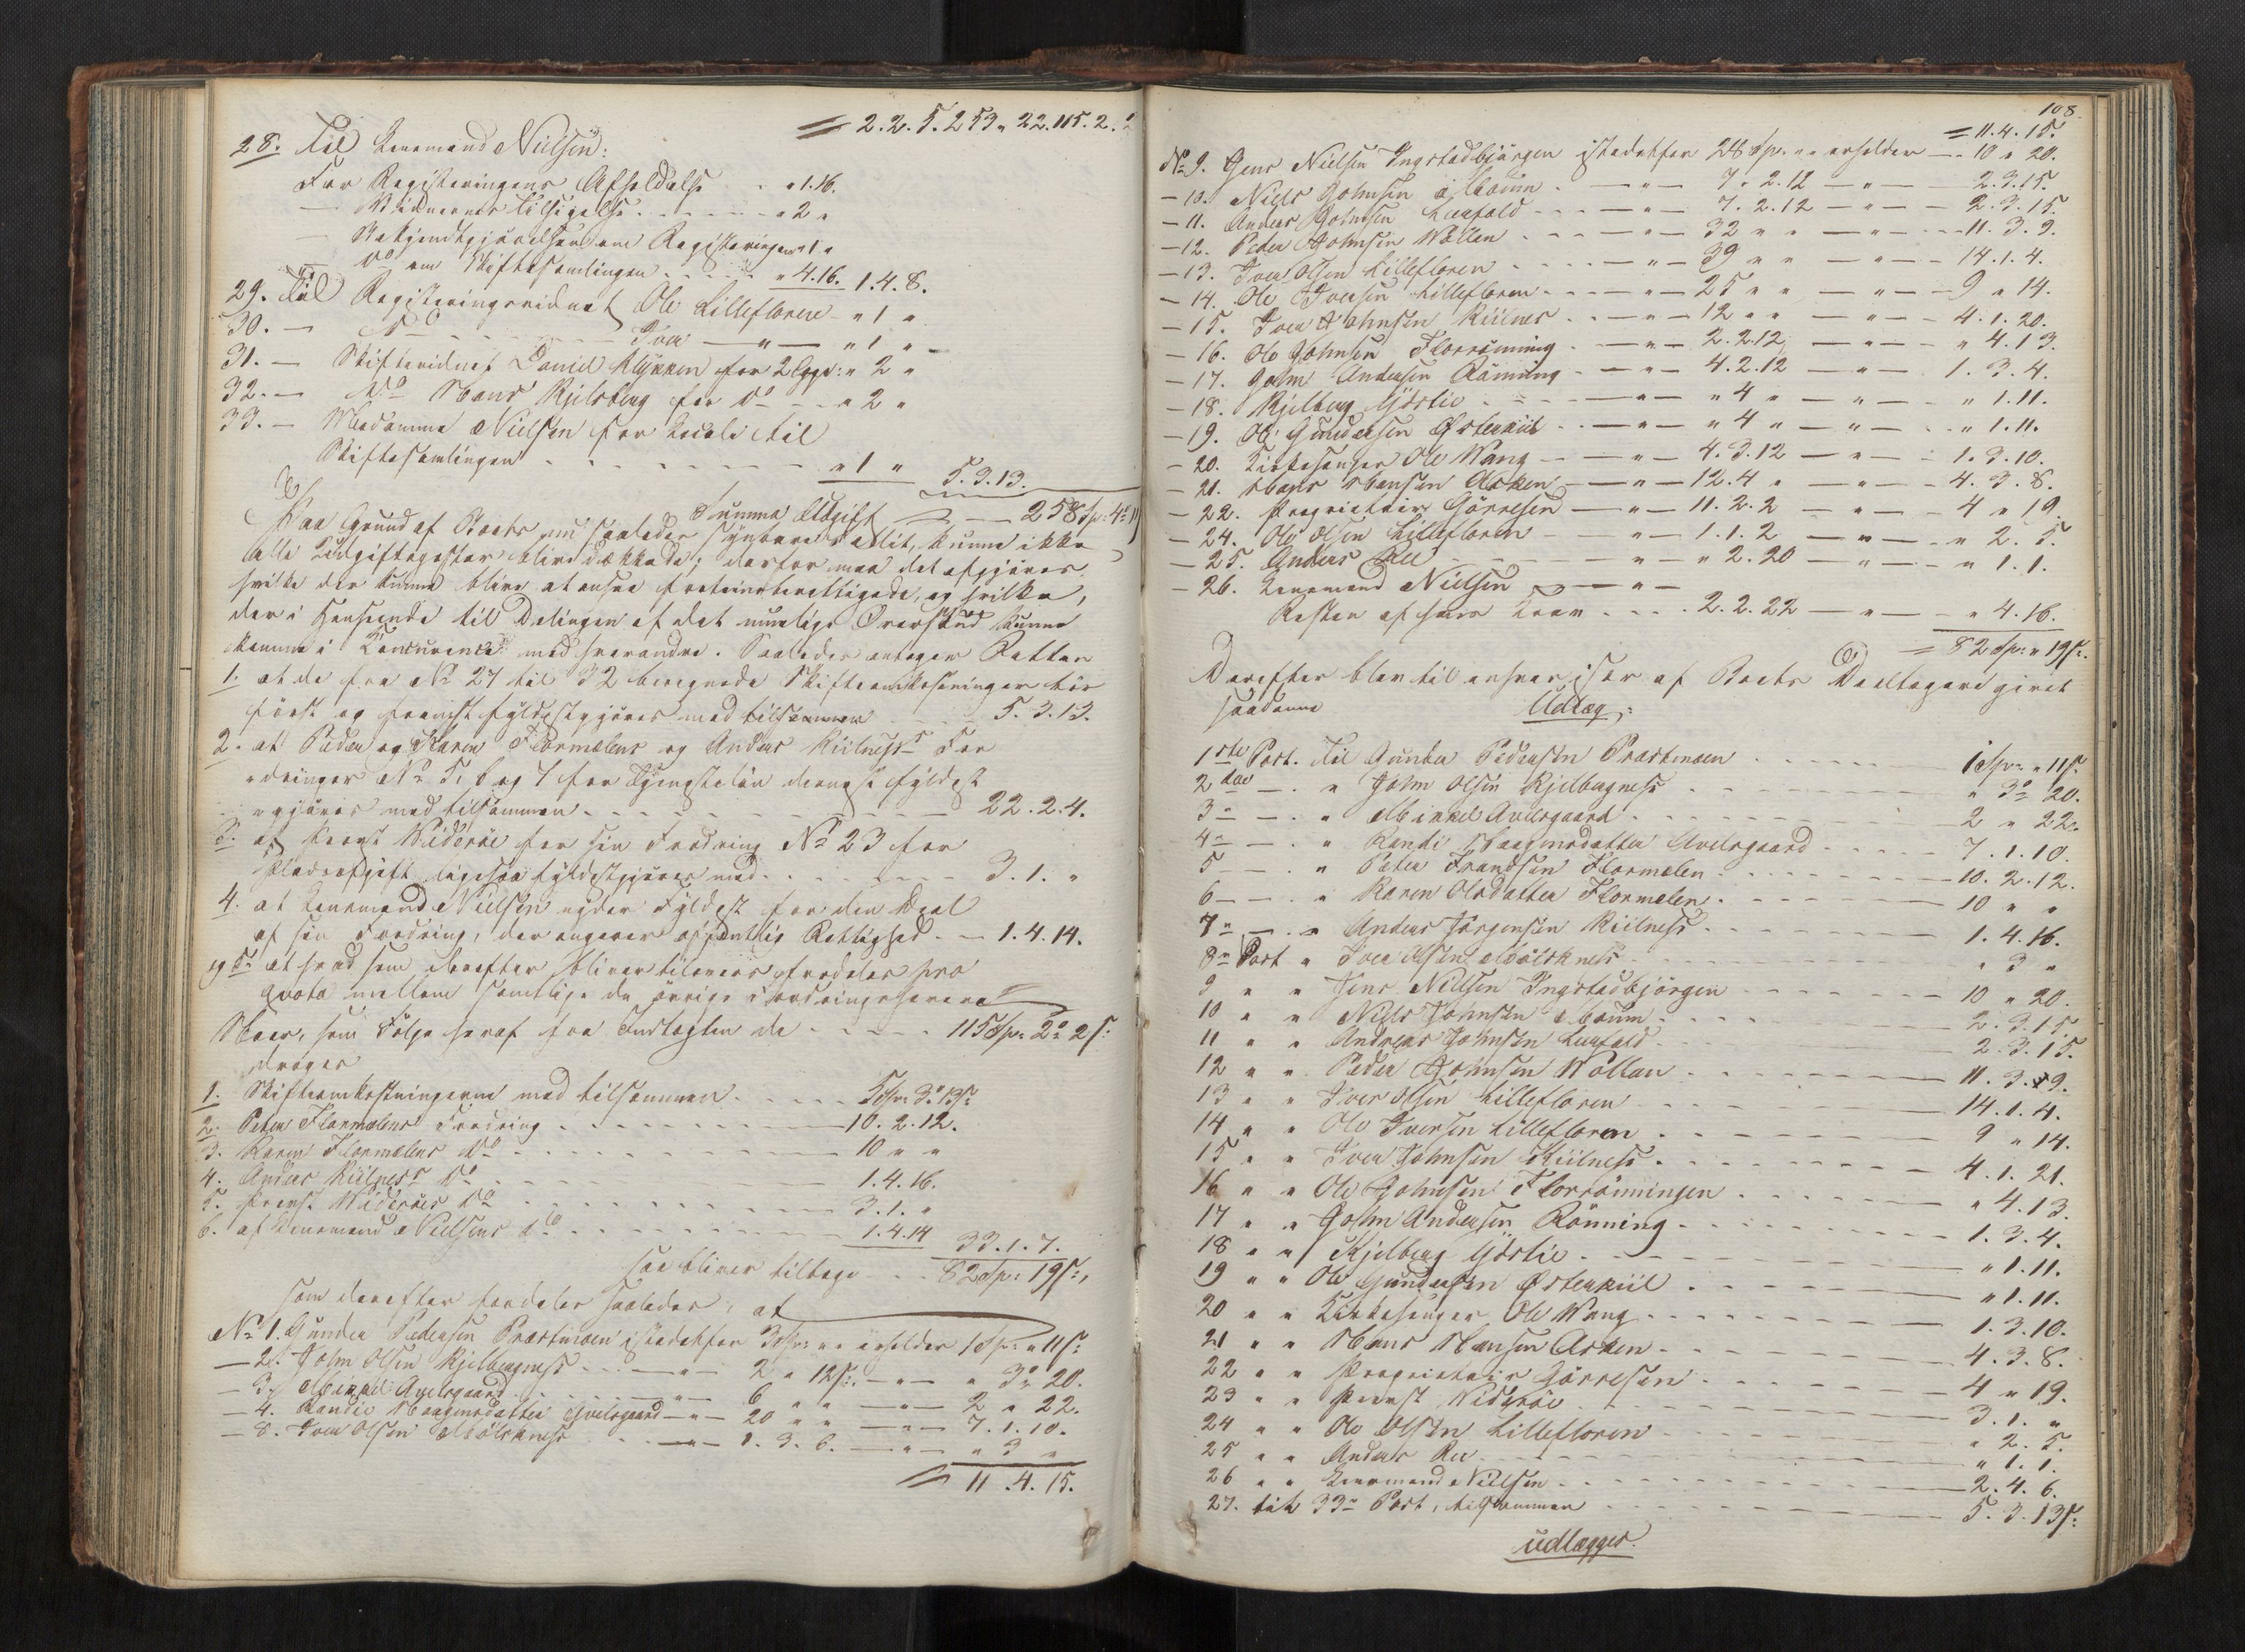 = 2.2.5. 253 " 22. 115.2.2
28. Til Lensmand Nielsen:
For Registeringens Afholdelse . . " 1.16.
— Vidnernes Tilsigelse . . . . . . " 2 "
— Bekjendtgjørelsen om Registeringen " 1 "
— Do om Skiftesamlingen . . . . . " 4.16. 1.4.8.
29. Til Registeringsvidnet Ole Lillefloren - " 1 "
30. — Do — Iver — " — " 1 "
31. — Skiftevidnet Daniel Klykken for 2 Dage: " 2 "
32. — Do Hans Kjelsberg for Do - - " 2 "
33. — Madamme Nielsen for Locale til
Skiftesamlingen . . . . . . . " 1 " 5.3.13.
Summa Udgift — 258 Sp: 4 " 11
Paa Grund af Boets nu saaledes synbare Deficit, kunne ikke
alle Udgiftsposter blive dækkede; derfor maa det afgjøres
hvilke der kunne blive at ansee fortrinsberettigede, og hvilke,
der i Henseende til Delingen af det muelige Overskud kunne
komme i Concurence med hverandre. Saaledes antager Retten
1. at de fra No 27 til 32 beregnede Skifteomkostninger bør
først og fremst fyldestgjøres med tilsammen . . . 5.3.13.
2. at Peder og Karen Flormælens og Anders Kiilness For
dringer No 5, 6 og 7 for Tjenesteløn dernæst fyldest
gjøres med tilsammen . . . . . . . 22.2.4.
3. at Provst Widerøe for sin Fordring No 23 for
Pladsafgift ligesaa fyldestgjøres med . . . . . 3.1. "
4. at Lensmand Nielsen nyder Fyldest for den Deel
af sin Fordring, der angaaer offentlig Rettighed . — 1.4.14.
og 5. at hvad som derefter bliver tilovers fordeles pro
qvota mellem samtlige de øvrige Fordringshavere
Skeer, som Følge heraf fra Indtægten de . . . . . 115 Sp: 2 " 2 s:
drages
1. Skifteomkostningerne med tilsammen . . . . . 5 Sp: 3 " 13 s:
2. Peter Flormælens Fordring . . . . . . . 10.2.12.
3. Karen Flormælens Do . . . . . . . 10 " "
4. Anders Kiilness Do . . . . . . . 1.4.16.
5. Provst Widerøes Do . . . . . . . 3.1. "
6. af Lensmand Nielsens Do . . . . . . . 1.4.14 33.1.7.
saa bliver tilbage . . 82 Sp: 19 s:,
som derefter fordeles saaledes, at
No 1. Gunder Pedersen Præstmoen istedetfor 3 Sp: " " erholder 1 Sp: " 11 s:
— 2. John Olsen Kjelbergness . . — " — 2 " 12 s: — " — " 3 " 20.
— 3. Avelsgaard . . . . — " — 6 " " — " — 2 " 22.
— 4. Randi Haagensdatter Avelsgaard — " — 20 " " — " — 7.1.10.
— 8. Iver Olsen Mølskness . . — " — 1.3.6. — " — " 3 "
= 11.4.15.
108.
= 11.4.15.
No 9. Jens Nielsen Ingstadbjørgen istedetfor 28 Sp. " " erholder — 10 " 20.
— 10. Niels Johnsen . — " — 7.2.12 — " — 2.3.15.
— 11. Anders Johnsen Luafald . . — " — 7.2.12 — " — 2.3.15.
— 12. Peder Johnsen Wollen . . . — " — 32 " " — " — 11.3.9.
— 13. Iver Olsen Lillefloren . . . . — " — 39 " " — " — 14.1.4.
— 14. Ole Iversen Lillefloren . . . — " — 25 " " — " — 9 " 14.
— 15. Iver Johnsen Kiilnes . . — " — 12 " " — " — 4.1.20.
— 16. Ole Johnsen Florrønning . — " — 2.2.12 — " — " 4.13.
— 17. John Andersen Rønning . — " — 4.2.12 — " — 1.3.4.
— 18. Kjelberg Gjøslie . . . — " — " 4 " — " — " 1.11.
— 19. Ole Gundersen Østerkiil . . — " — " 4 " — " — " 1.11.
— 20. Kirkesanger Ole Wang — — " — 4.3.12 — " — 1.3.10.
— 21. Hans Hansen Asken — " — 12.4 " — " — 4.3.8.
— 22. Proprietair Gørresen — " — 11.2.2 — " — 4 " 19.
— 24. Ole Olsen Lillefloren — — " — 1.1.2 — " — " 2.5.
— 25. Anders Ree — " — " 2.20 — " — " 1.1.
— 26. Lensmand Nielsen — " —
Resten af hans Krav . . . 2.2.22 — " — " 4.16.
= 82 Sp: " 19 s:.
Derefter blev til enhver især af Boets Deeltagere givet
saadanne Udlæg:
1ste Post. Til Gunder Pedersen Præstmoen . . . . . 1 Sp: " 11 s.
2den — . " John Olsen Kjelbergness . . . . " 3 " 20.
3" — . " Avelsgaard . . . . . 2 " 22.
4" — . " Randi Haagensdatter Avelsgaard . . . . 7.1.10.
5 — . " Peter Frandsen Flormælen . . . . . 10.2.12.
6 — . " Karen Olsdatter Flormælen . . . . . 10 " "
7" — . " Anders Jørgensen Kiilness . . . . . 1.4.16.
8" Post " Iver Olsen Mølskness . . . . . " 3 "
9 " " Jens Nielsen Ingstadbjørgen . . . . . 10 " 20.
10 " " Niels Johnsen . . . . . 2.3.15.
11 " " Andreas Johnsen Luafald . . . . . 2.3.15.
12 " " Peder Johnsen Wollan . . . . . 11.3.9.
13 " " Iver Olsen Lillefloren . . . . . 14.1.4.
14 " " Ole Iversen Lillefloren . . . . . 9 " 14.
15 " " Iver Johnsen Kiilness . . . . . 4.1.21.
16 " " Ole Johnsen Florrønningen . . . . . " 4.13.
17 " " John Andersen Rønning . . . . . 1.3.4.
18 " " Kjelberg Gjøslie . . . . . " 1.11.
19 " " Ole Gundersen Østerkiil . . . . . " 1.11.
20 " " Kirkesanger Ole Wang . . . . . 1.3.10.
21 " " Hans Hansen Asken . . . . . 4.3.8.
22 " " Proprietair Gørresen . . . . . 4 " 19.
23 " " Provst Widerøe . . . . . 3.1. "
24 " " Ole Olsen Lillefloren . . . . . " 2.5.
25 " " Anders Ree . . . . . " 1.1.
26 " " Lensmand Nielsen . . . . . 2.4.6.
27. til 33" Post, tilsammen . . . . . 5.3.13 s:
udlægges.